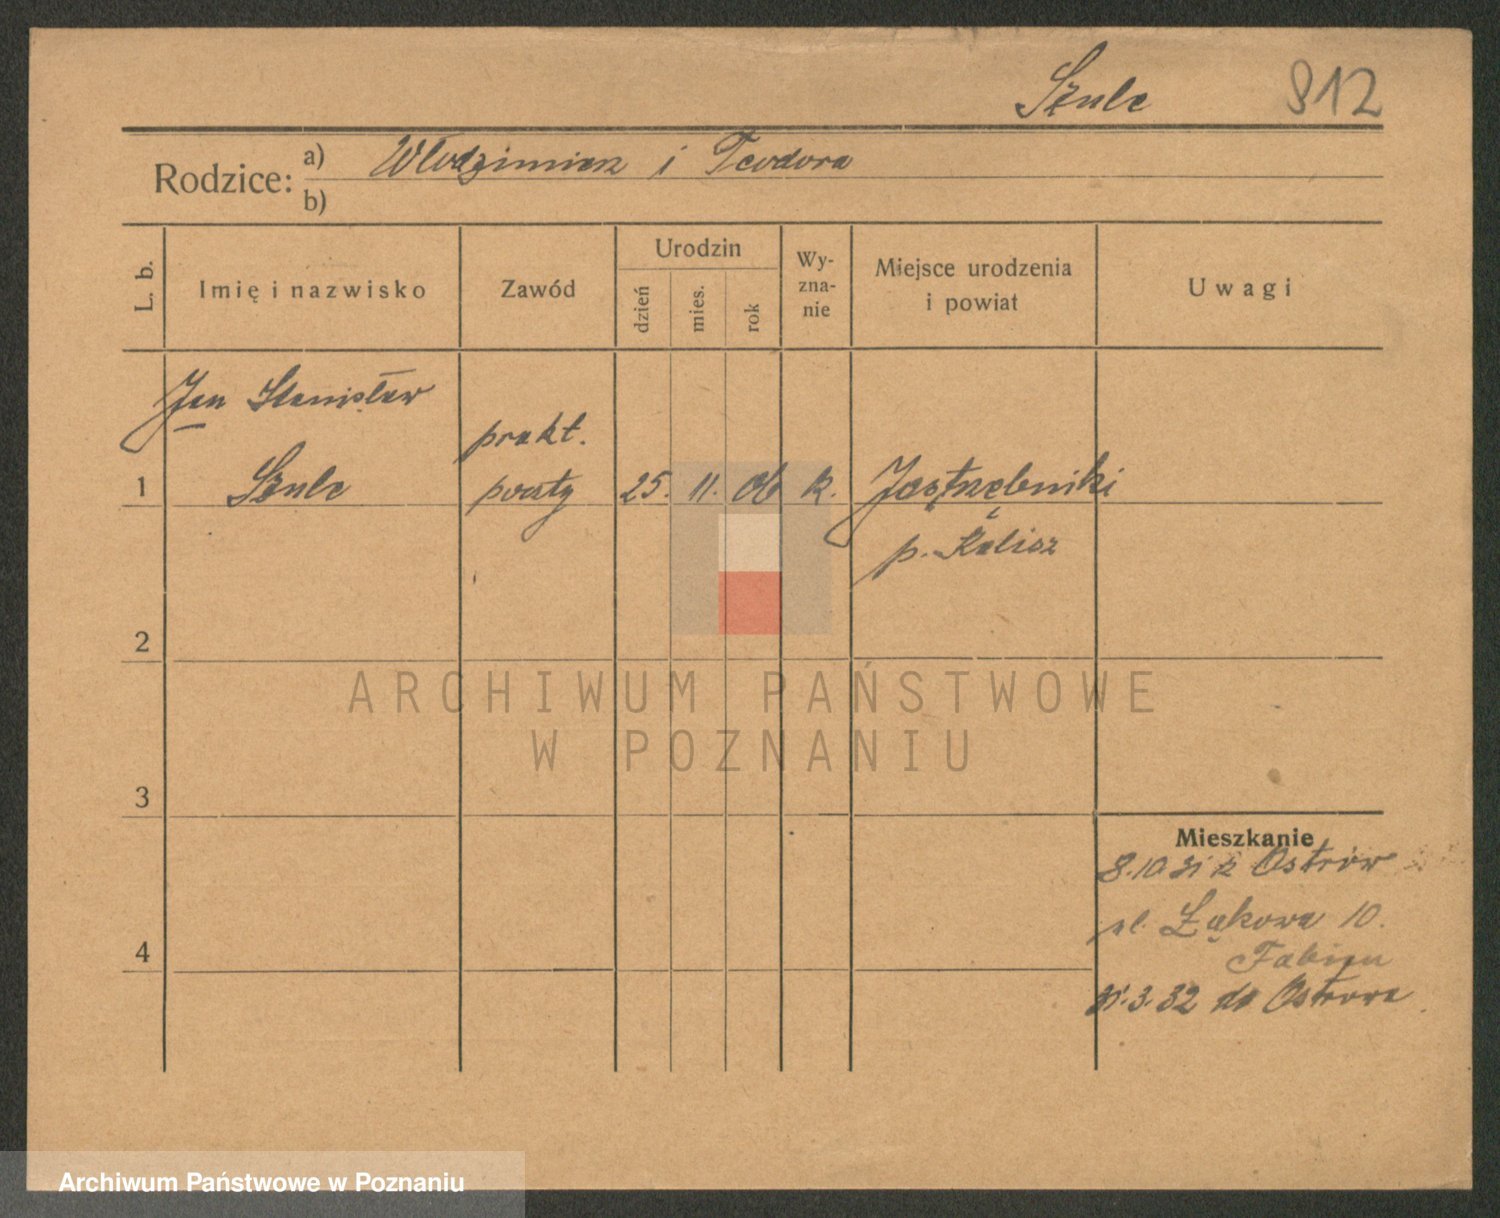 Szulc 912
Rodzice: a) Włodzimierz i Teodora
b)
L. b.
Imię i nazwisko
Zawód
Urodzin
dzień
mies.
rok
Wy-
zna-
nie
Miejsce urodzenia
i powiat
Uwagi
Jan Stanisław
prakt.
1 Szulc poczty 25. 11. 06 k. Jastrzębniki
p. Kalisz
2
ARCHIWUM PAŃSTWOWE
W POZNANIU
3
Mieszkanie
8.10 31 z Ostrów
ul. Łąkowa 10.
Fabian
4
31.3.32 do Ostrowa
Archiwum Państwowe w Poznaniu